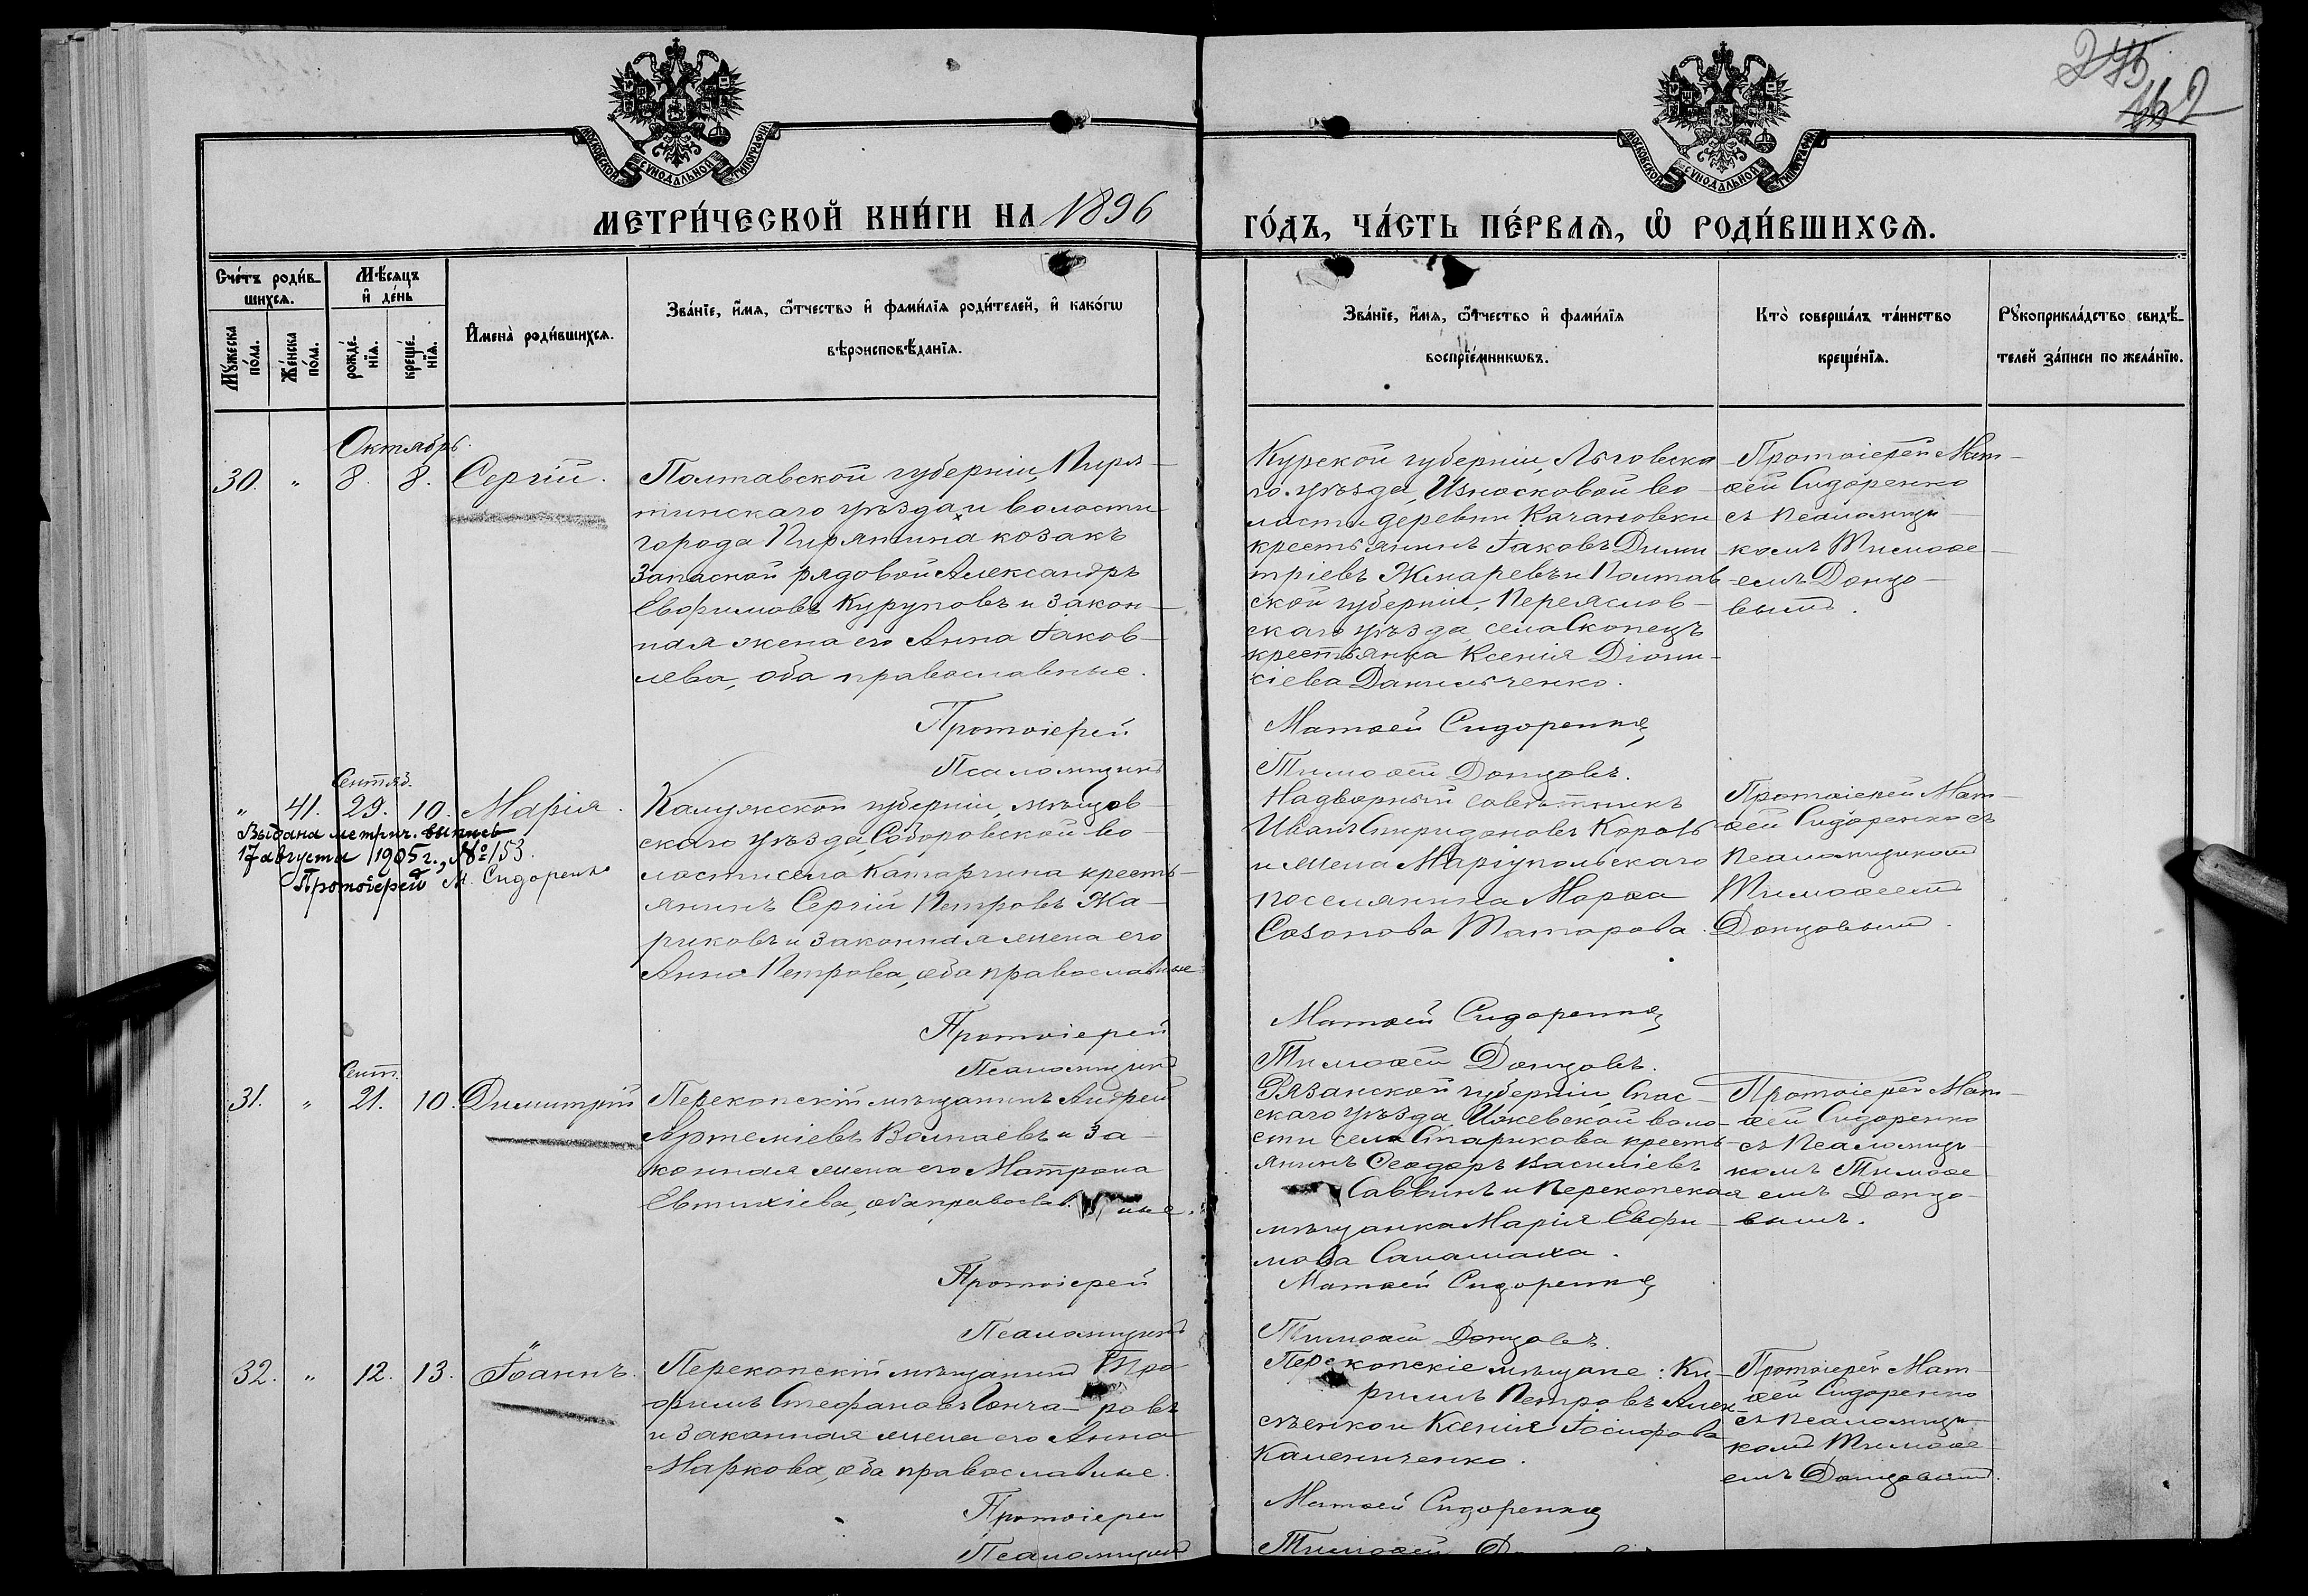 275
162
МОСКОВСКОЙ СѴНОДАЛЬНОЙ ТИПОГРАФІИ
МОСКОВСКОЙ СѴНОДАЛЬНОЙ ТИПОГРАФІИ
МЕТРИ́ЧЕСКОЙ КНИ́ГИ НА 1896
ГО́ДЪ, ЧА́СТЬ ПЕ́РВАѦ, Ѡ҆ РОДИ́ВШИХСѦ.
Сче́тъ роди́в-
шихсѧ.
Мꙋ́жеска
по́ла.
Же́нска
по́ла.
Мѣ́сѧцъ
и҆ де́нь
рожде́-
нїѧ.
креще́-
нїѧ.
И҆мена̀ роди́вшихсѧ.
Зва́нїе, и҆́мѧ, ѻ҆́тчество и҆ фами́лїѧ роди́телей, и҆ како́гѡ
вѣроисповѣ́данїѧ.
Зва́нїе, и҆́мѧ, ѻ҆́тчество и҆ фами́лїѧ
воспрїе́мникѡвъ.
Кто̀ соверша́лъ та́инство
креще́нїѧ.
Рꙋкоприкла́дство свидѣ́-
телей за́писи по жела́нїю.
Октябрь.
30. „ 8. 8. Сергій.
Полтавской губерніи, Пиря-
тинскаго уѣзда и волости
города Пирятина козакъ
Запасной рядовой Александръ
Евфимовъ Куруповъ и закон-
ная жена его Анна Іаков-
лева, оба православные.
Протоіерей
Псаломщикъ
Курской губерніи, Льговска
го уѣзда, Износковой во-
лости деревни Качановки
крестьянинъ Іаковъ Дими
тріевъ Жмаревъ и Полтав
ской губерніи, Переяслов-
скаго уѣзда села Скопецъ
крестьянка Ксенія Діони-
сіева Данильченко.
Матѳей Сидоренко
Тимоѳей Донцовъ.
Протоіерей Мат-
ѳей Сидоренко
съ псаломщи-
комъ Тимоѳе-
емъ Донцо-
вымъ.
Сентяб.
„ 41. 29. 10. Марія.
Выдана метрич. выпись
17 августа 1905 г., № 153.
Протоіерей М. Сидоренко
Калужской губерніи, мѣщов-
скаго уѣзда, Соборовской во-
лости села Катаргина кресть-
янинъ Сергій Петровъ Жа-
риковъ и законная жена его
Анна Петрова, оба православные
Протоіерей
Псаломщикъ
Надворный совѣтникъ
Иванъ Спиридоновъ Король
и жена Маріупольскаго
поселянина Марѳа
Созонова Татарова.
Матѳей Сидоренко
Тимоѳей Донцовъ.
Протоіерей Мат-
ѳей Сидоренко съ
псаломщикомъ
Тимоѳеемъ
Донцовымъ.
Сент.
31. „ 21. 10. Димитрій
Перекопскій мѣщанинъ Андрей
Артеміевъ Колпаевъ и за-
конная жена его Матрона
Евтихіева, оба православные.
Протоіерей
Псаломщикъ
Рязанской губерніи, Спас-
скаго уѣзда, Ижевской воло-
сти села Старикова кресть-
янинъ Ѳеодоръ Василіевъ
Саввинъ и Перекопская
мѣщанка Марія Евфи-
мова
Матѳей Сидоренко
Тимоѳей Донцовъ.
Протоіерей Мат-
ѳей Сидоренко
съ псаломщи-
комъ Тимоѳе
емъ Донцо-
вымъ.
32. „ 12. 13. Іоаннъ.
Перекопскій мѣщанинъ Тро-
фимъ Стефановъ Гончаровъ
и законная жена его Анна
Маркова, оба православные.
Протоіерей
Псаломщикъ
Перекопскіе мѣщане: Ки-
риллъ Петровъ Алек-
сѣенко и Ксенія Іосифова
Каменченко.
Матѳей Сидоренко
Тимоѳей
Протоіерей Мат-
ѳей Сидоренко
съ псаломщи-
комъ Тимоѳе-
емъ Донцовымъ.